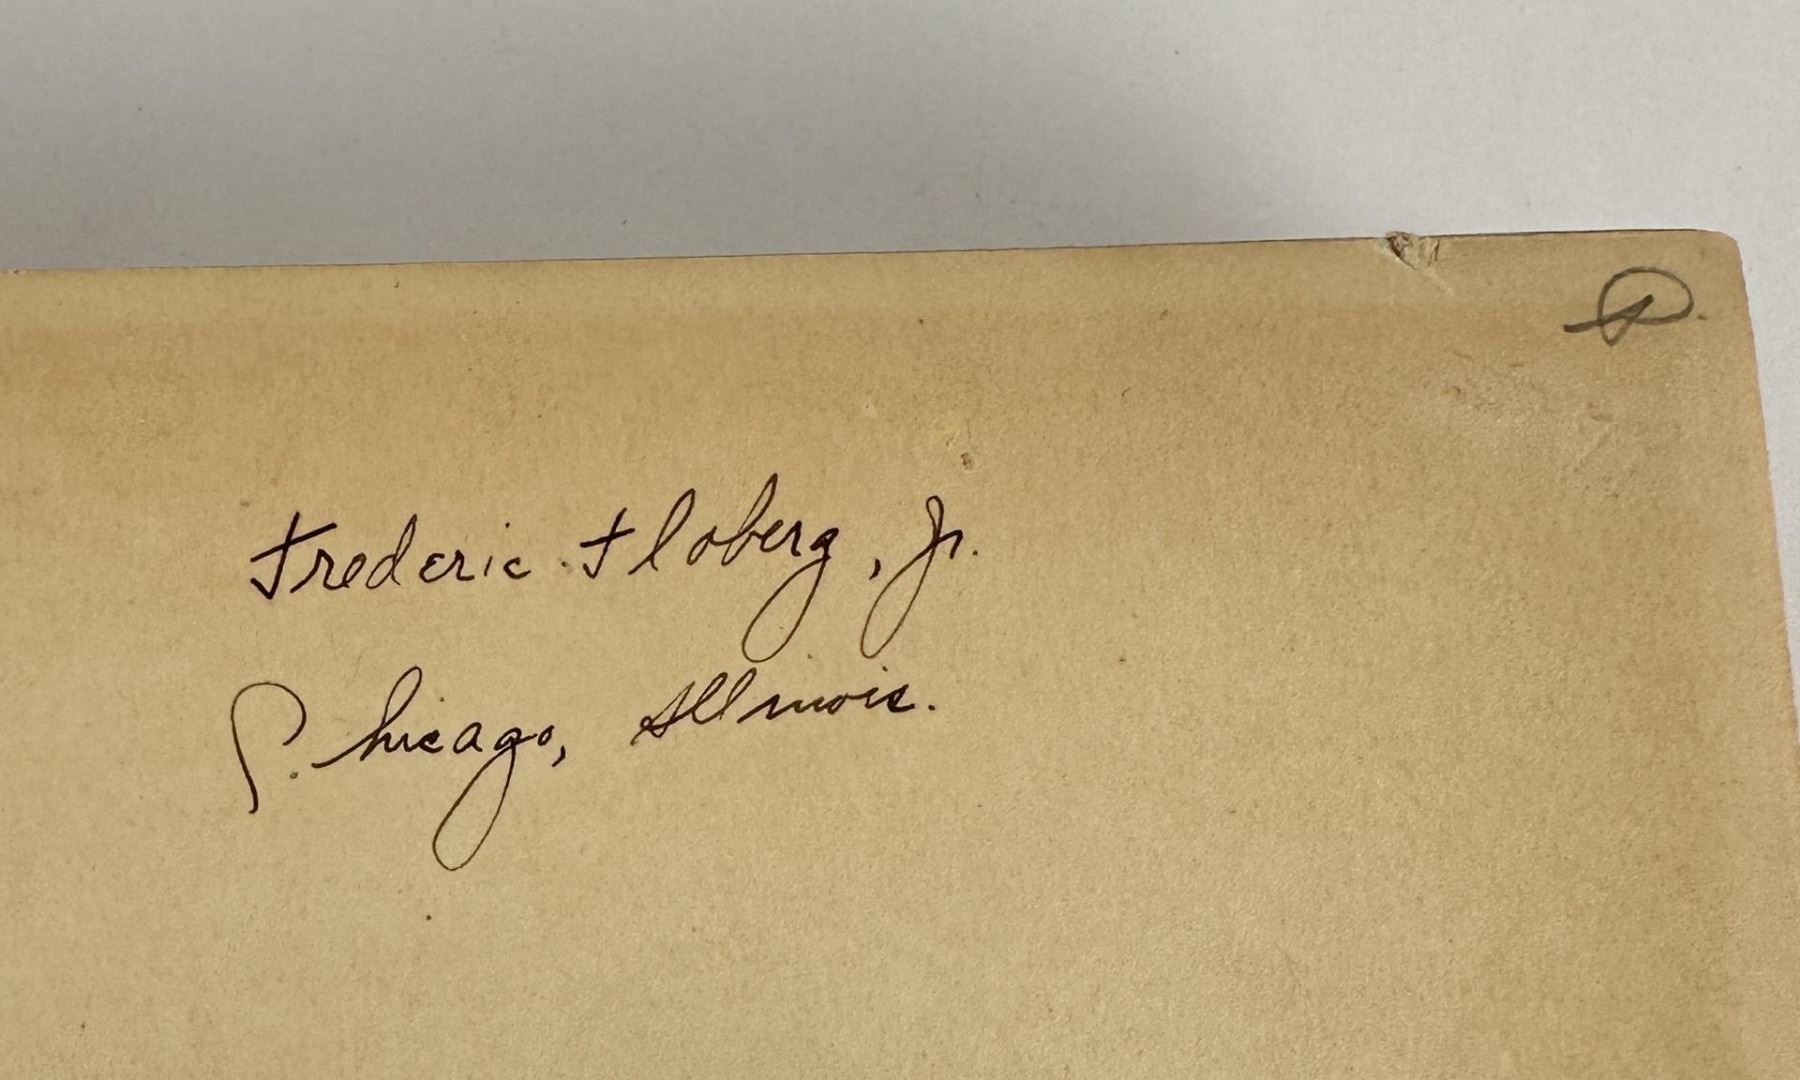 Frederic Floberg, Jr.
Chicago, Illinois.